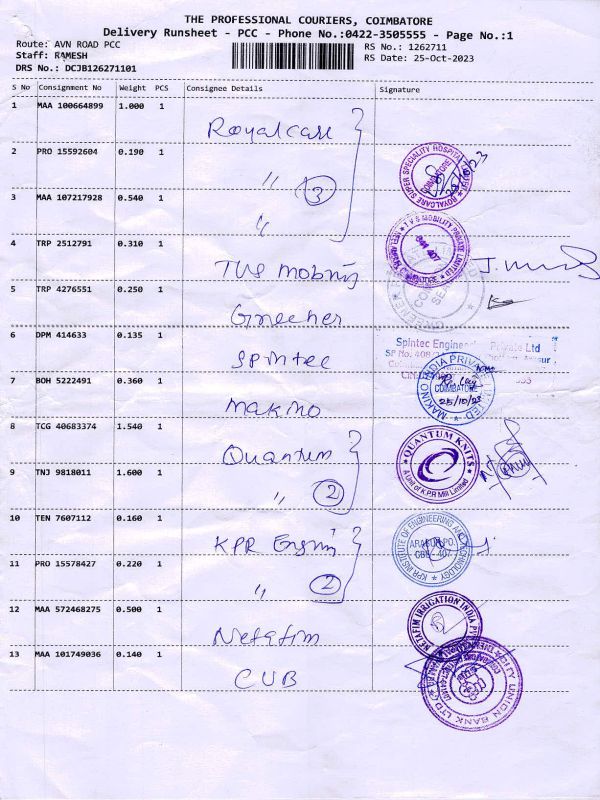 THE PROFESSIONAL COURIERS, COIMBATORE
Delivery Runsheet - PCC - Phone No.:0422-3505555 - Page No.:1
Route: AVN ROAD PCC
RS No.: 1262711
Staff: RAMESH
RS Date: 25-Oct-2023
DRS No.: DCJB126271101
S No Consignment No Weight PCS Consignee Details Signature
1 MAA 100664899 1.000 1 Royalcare
2 PRO 15592604 0.190 1 〃 3
ROYALCARE SUPER SPECIALITY HOSPITAL
COIMBATORE
3 MAA 107217928 0.540 1 〃
4 TRP 2512791 0.310 1 TVS Mobility
T V S MOBILITY PRIVATE LIMITED
641 407
5 TRP 4276551 0.250 1
6 DPM 414633 0.135 1 Spintec
Spintec Engineering Private Ltd
SP No. 408/
7 BOH 5222491 0.360 1 Makino
MAKINO INDIA PRIVATE LIMITED
COIMBATORE
25/10/23
8 TCG 40683374 1.540 1 Quantum
QUANTUM KNITS
A Unit of K.P.R Mill Limited
9 TNJ 9818011 1.600 1 〃 2
10 TEN 7607112 0.160 1 KPR Engin
KPR INSTITUTE OF ENGINEERING AND TECHNOLOGY
ARASUR PO.
CBE - 407
11 PRO 15578427 0.220 1 〃 2
12 MAA 572468275 0.500 1 Netafim
NETAFIM IRRIGATION INDIA
13 MAA 101749036 0.140 1 CUB
CITY UNION BANK LTD